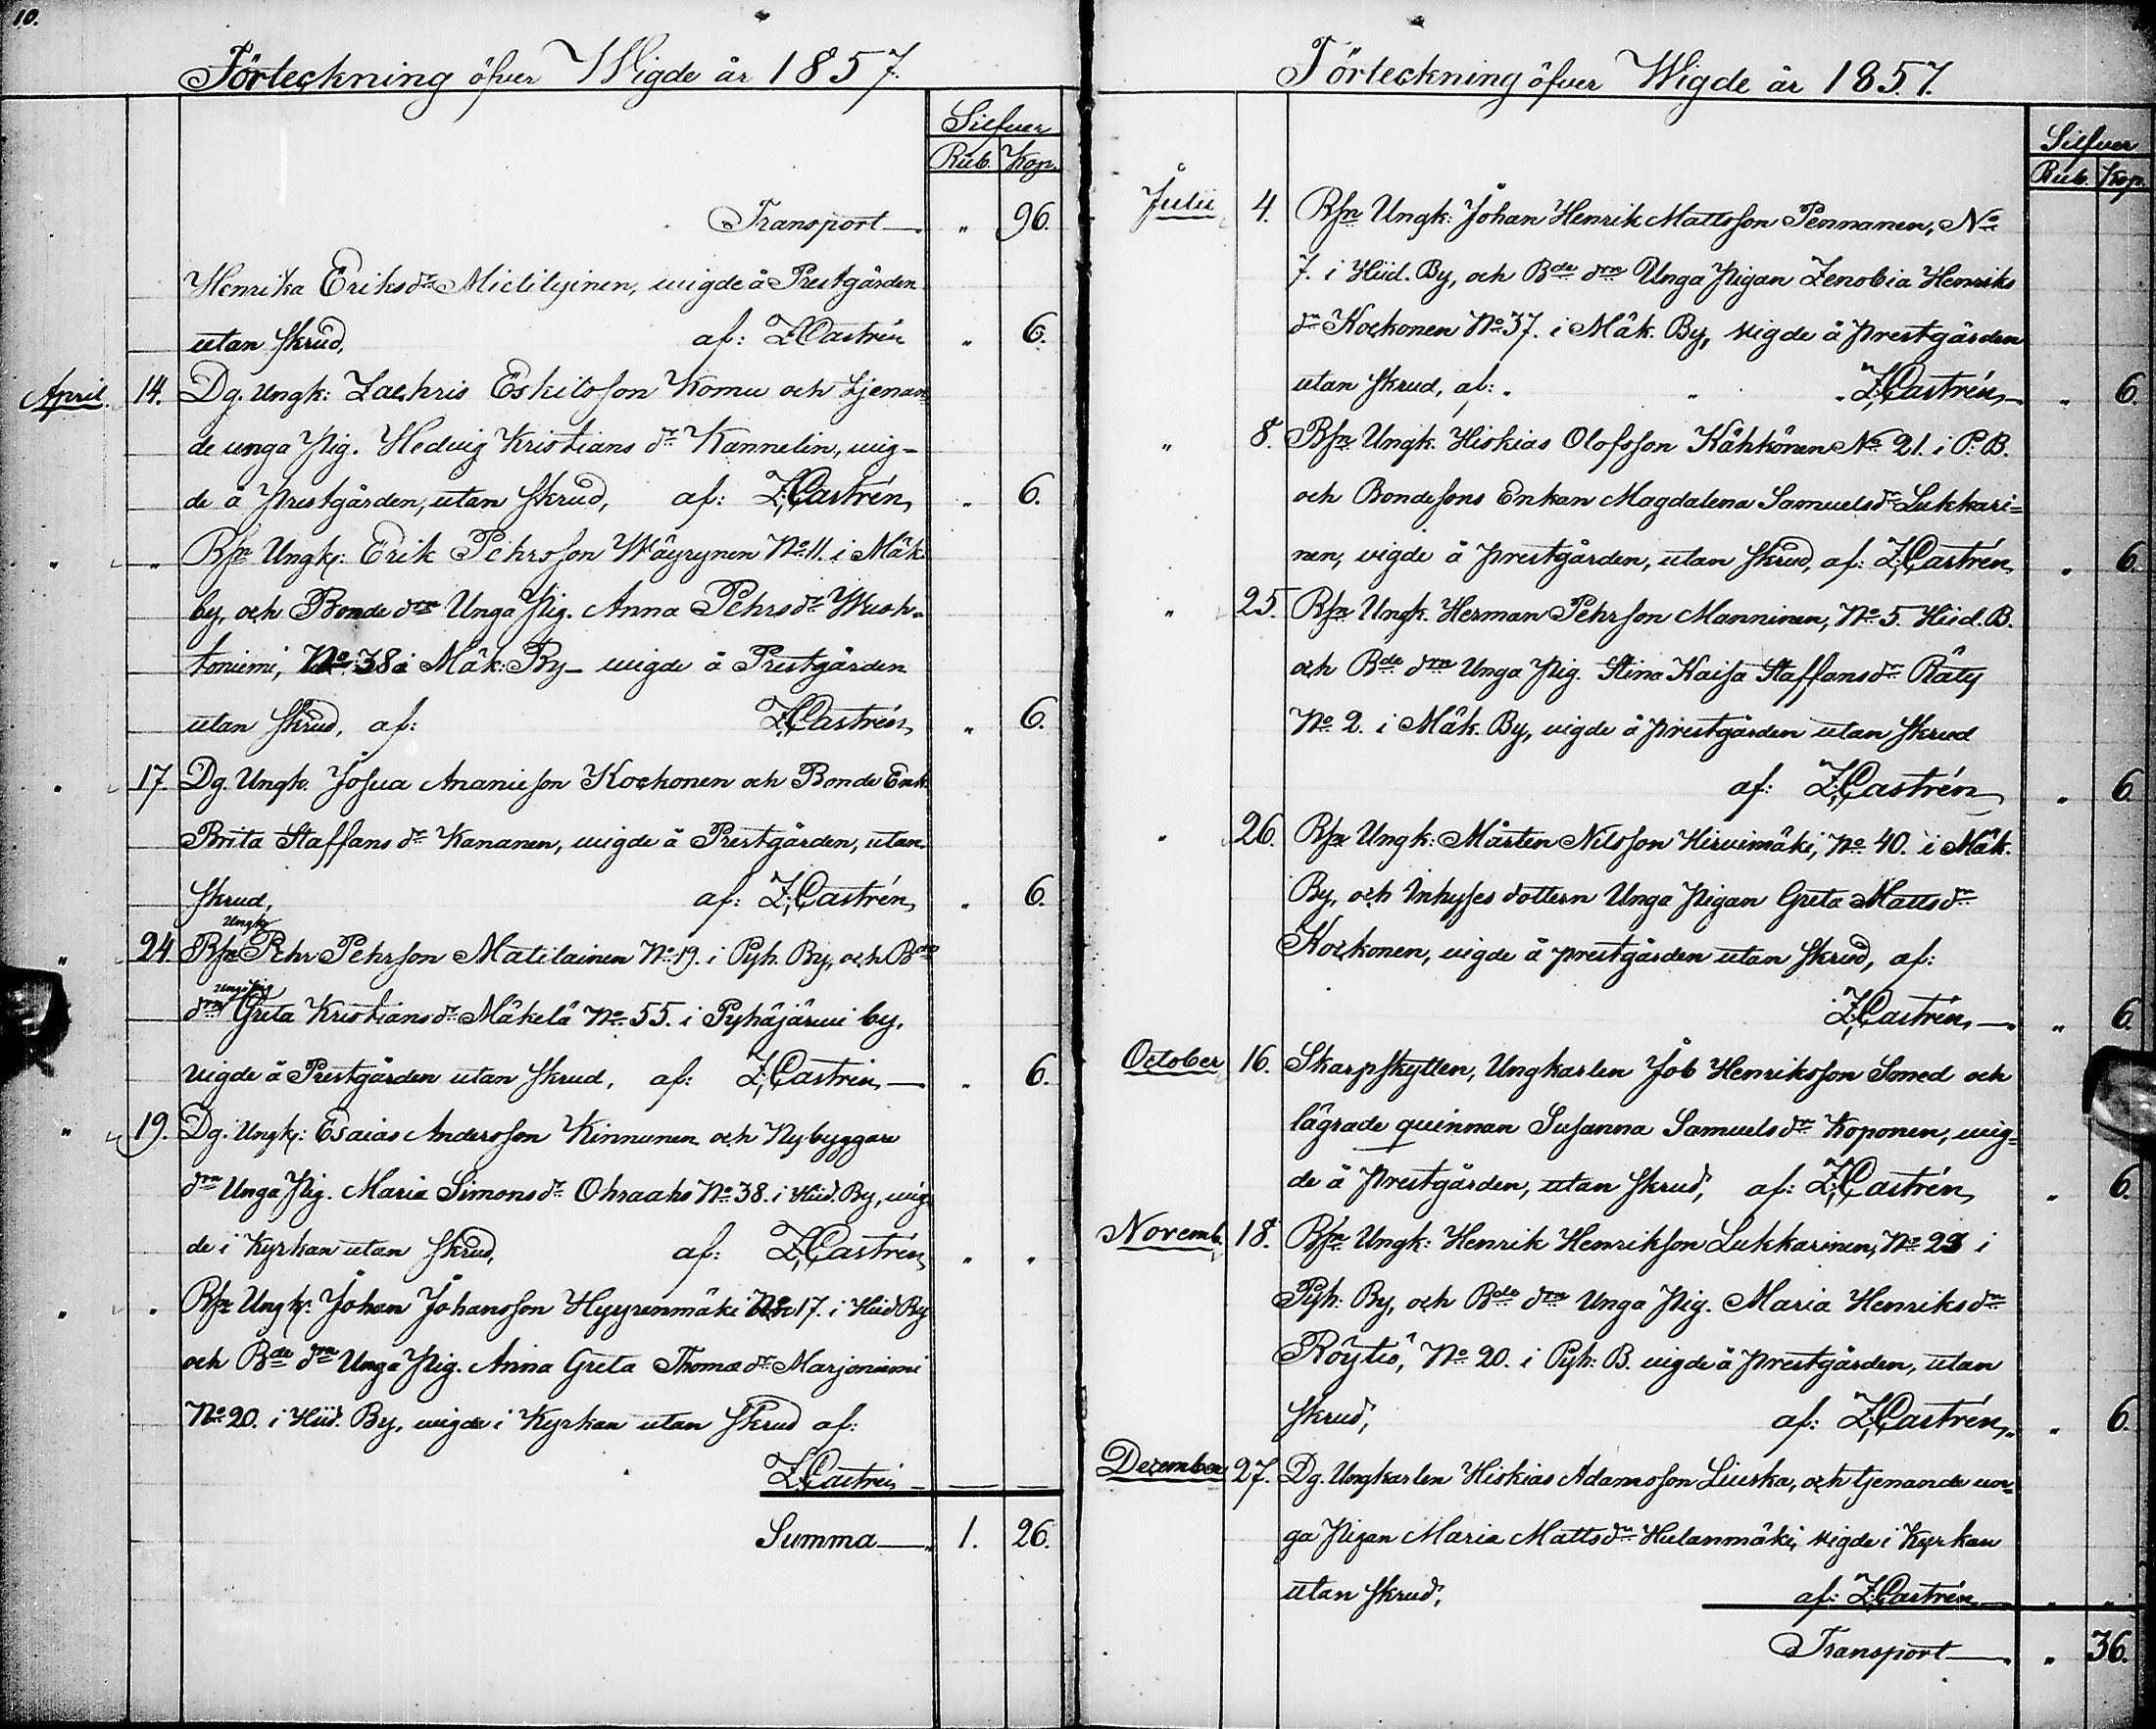 10.
Förteckning öfver Wigde år 1857.
Silfver
Rub. Kop.
Transport " 96.
Henrika Eriksdr Mielityinen, wigde å Prestgården
utan skrud, af: Z Castrén " 6.
April. 14. Dg. Ungk: Zachris Eskilsson Komu och tjenan
de unga Pig. Hedvig Kristians dr Kannelin, wig-
de å Prestgården, utan skrud, af: Z. Castrén, " 6.
" " Bsn Ungk: Erik Pehrsson Wäyrynen No 11. i Mäk.
by, och Bonde drn Unga Pig. Anna Pehrsdr Wuoh-
toniemi, No 38 i Mäk: By - wigde å Prestgården
utan skrud, af: Z. Castrén, " 6.
" 17. Dg. Ungk. Josua Ananieson Kockonen och Bonde Enk.
Brita Staffans dr Kananen, wigde å Prestgården, utan
skrud, af: Z. Castrén, " 6.
Ungk
" 24. Bsn Pehr Pehrson Matilainen No 19. i Pyh. By, och Bde
unga pig
drn Greta Kristiansdr Mäkelä No 55. i Pyhäjärwi by,
vigde å Prestgården utan skrud, af: Z. Castrén, " 6.
" 19. Dg. Ungk: Esaias Andersson Kinnunen och Nybyggare
drn Unga Pig. Maria Simonsdr Ohraaho No 38. i Hiid. By, wig-
de i Kyrkan utan skrud, af: Z. Castrén, " "
" " Bsn Ungk: Johan Johansson Hyyrenmäki No 17. i Hiid By
och Bde drn Unga Pig. Anna Greta Thomæ dr Marjoniemi
No 20. i Hiid. By, wigde i Kyrkan utan skrud af:
Z Castrén
Summa 1. 26.
Förteckning öfver Wigde år 1857.
Silfver
Rub. Kop.
Julii 4. Bsn Ungk: Johan Henrik Mattsson Pennanen, No
7. i Hiid. By, och Bde drn Unga Pigan Zenobia Henriks
dr Kockonen No 37. i Mäk. By, vigde å prestgården
utan skrud, af: " " Z. Castrén, " 6.
" 8. Bsn Ungk. Hiskias Olofsson Kähkönen No 21. i P. B.
och Bondesons Enkan Magdalena Samuelsdr Lukkari=
nen, vigde å prestgården, utan skrud, af: Z. Castrén, " 6.
" 25. Bsn Ungk. Herman Pehrson Manninen, No 5. Hiid. B.
och Bde drn Unga Pig. Stina Kaisa Staffansdr Räty
No 2. i Mäk. By, vigde å prestgården utan skrud
af: Z. Castrén " 6.
" 26. Bsn Ungk: Mårten Nilsson Hirvimäki, No 40. i Mäk.
By, och Inhyses dottern Unga Pigan Greta Mattsdr
Kockonen, vigde å prestgården utan skrud, af:
Z. Castrén, " 6.
October 16. Skarpskytten, Ungkarlen Job Henriksson Smed och
lägrade quinnan Susanna Samuelsdr Koponen, wig=
de å Prestgården, utan skrud, af: Z. Castrén, " 6.
Novemb. 18. Bsn Ungk: Henrik Henrikson Lukkarinen, No 23 i
Pyh: By, och Bde drn Unga Pig. Maria Henriksdr
Röytiö, No 20. i Pyh: B. vigde å Prestgården, utan
skrud, af: Z. Castrén, " 6.
December 27. Dg. Ungkarlen Hiskias Adamsson Liuska, och tjenande un-
ga Pigan Maria Mattsdr Hulanmäki, vigde i Kyrkan
utan skrud, af: Z. Castrén " "
Transport " 36.